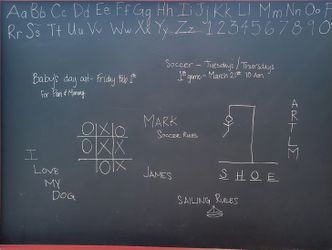 Aa Bb Cc Dd Ee Ff Gg Hh Ii Jj Kk Ll Mm Nn Oo P
Rr Ss Tt Uu Vv Ww Xx Yy Zz 1 2 3 4 5 6 7 8 9 0
Soccer - Tuesdays / Thursdays
1st game - March 21st 10 Am
Baby's day out - Friday Feb 1st
For Pam & Mommy
OXO
XXO
OXX
MARK
SOCCER RULES
JAMES
A
R
T
L
M
SHOE
I
LOVE
MY
DOG
SAILING RULES